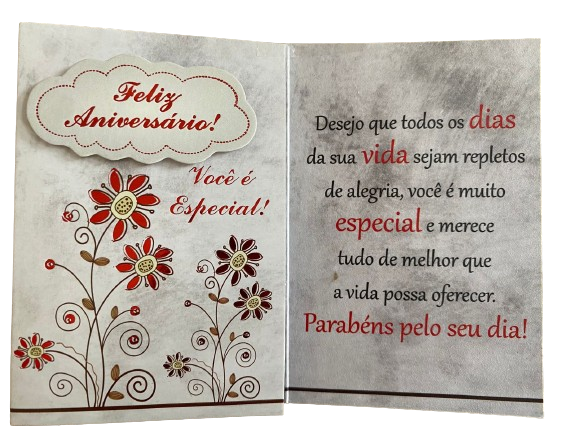 Feliz
Aniversário!
Você é
Especial!
Desejo que todos os dias
da sua vida sejam repletos
de alegria, você é muito
especial e merece
tudo de melhor que
a vida possa oferecer.
Parabéns pelo seu dia!